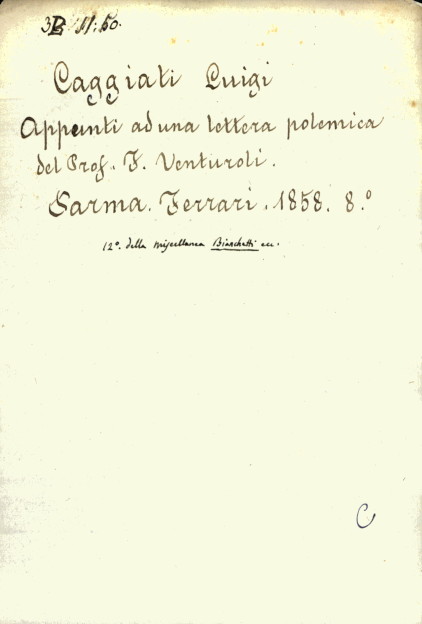 3B 11:50.
Caggiati Luigi
Appunti ad una lettera polemica
del Prof. F. Venturoli.
Parma. Ferrari. 1858. 8.º
12º. della miscellanea Bianchetti ecc.
C